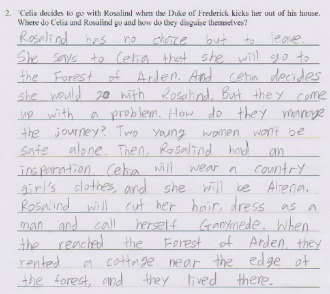 2. "Celia decides to go with Rosalind when the Duke of Frederick kicks her out of his house.
Where do Celia and Rosalind go and how do they disguise themselves?
Rosalind has no choice but to leave.
She says to Celia that she will go to
the Forest of Arden. And Celia decides
she would go with Rosalind. But they come
up with a problem. How do they manage
the journey? Two young women won't be
safe alone. Then, Rosalind had an
insparation. Celia will wear a country
girl's clothes, and she will be Aliena.
Rosalind will cut her hair, dress as a
man and call herself Ganymede. When
the reached the Forest of Arden, they
rented a cottage near the edge of
the forest, and they lived there.